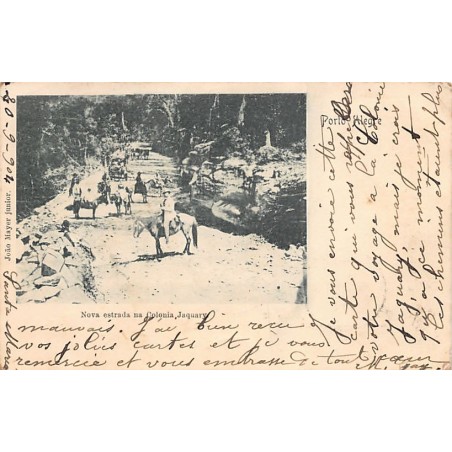 Porto-Alegre
João Mayer junior.
Nova estrada na Colonia Jaquary
20-9-904
Santa Maria
Je vous envoie cette
carte qui vous rappellera
votre voyage a la Colonie
Jaguary, mais je crois
qu'à ce moment
les chemins étaient plus
mauvais. J'ai bien recu
vos jolies cartes et je vous
remercie et vous embrasse de tout cœur